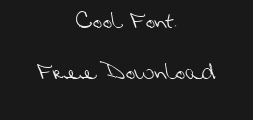 Cool Font.
Free Download